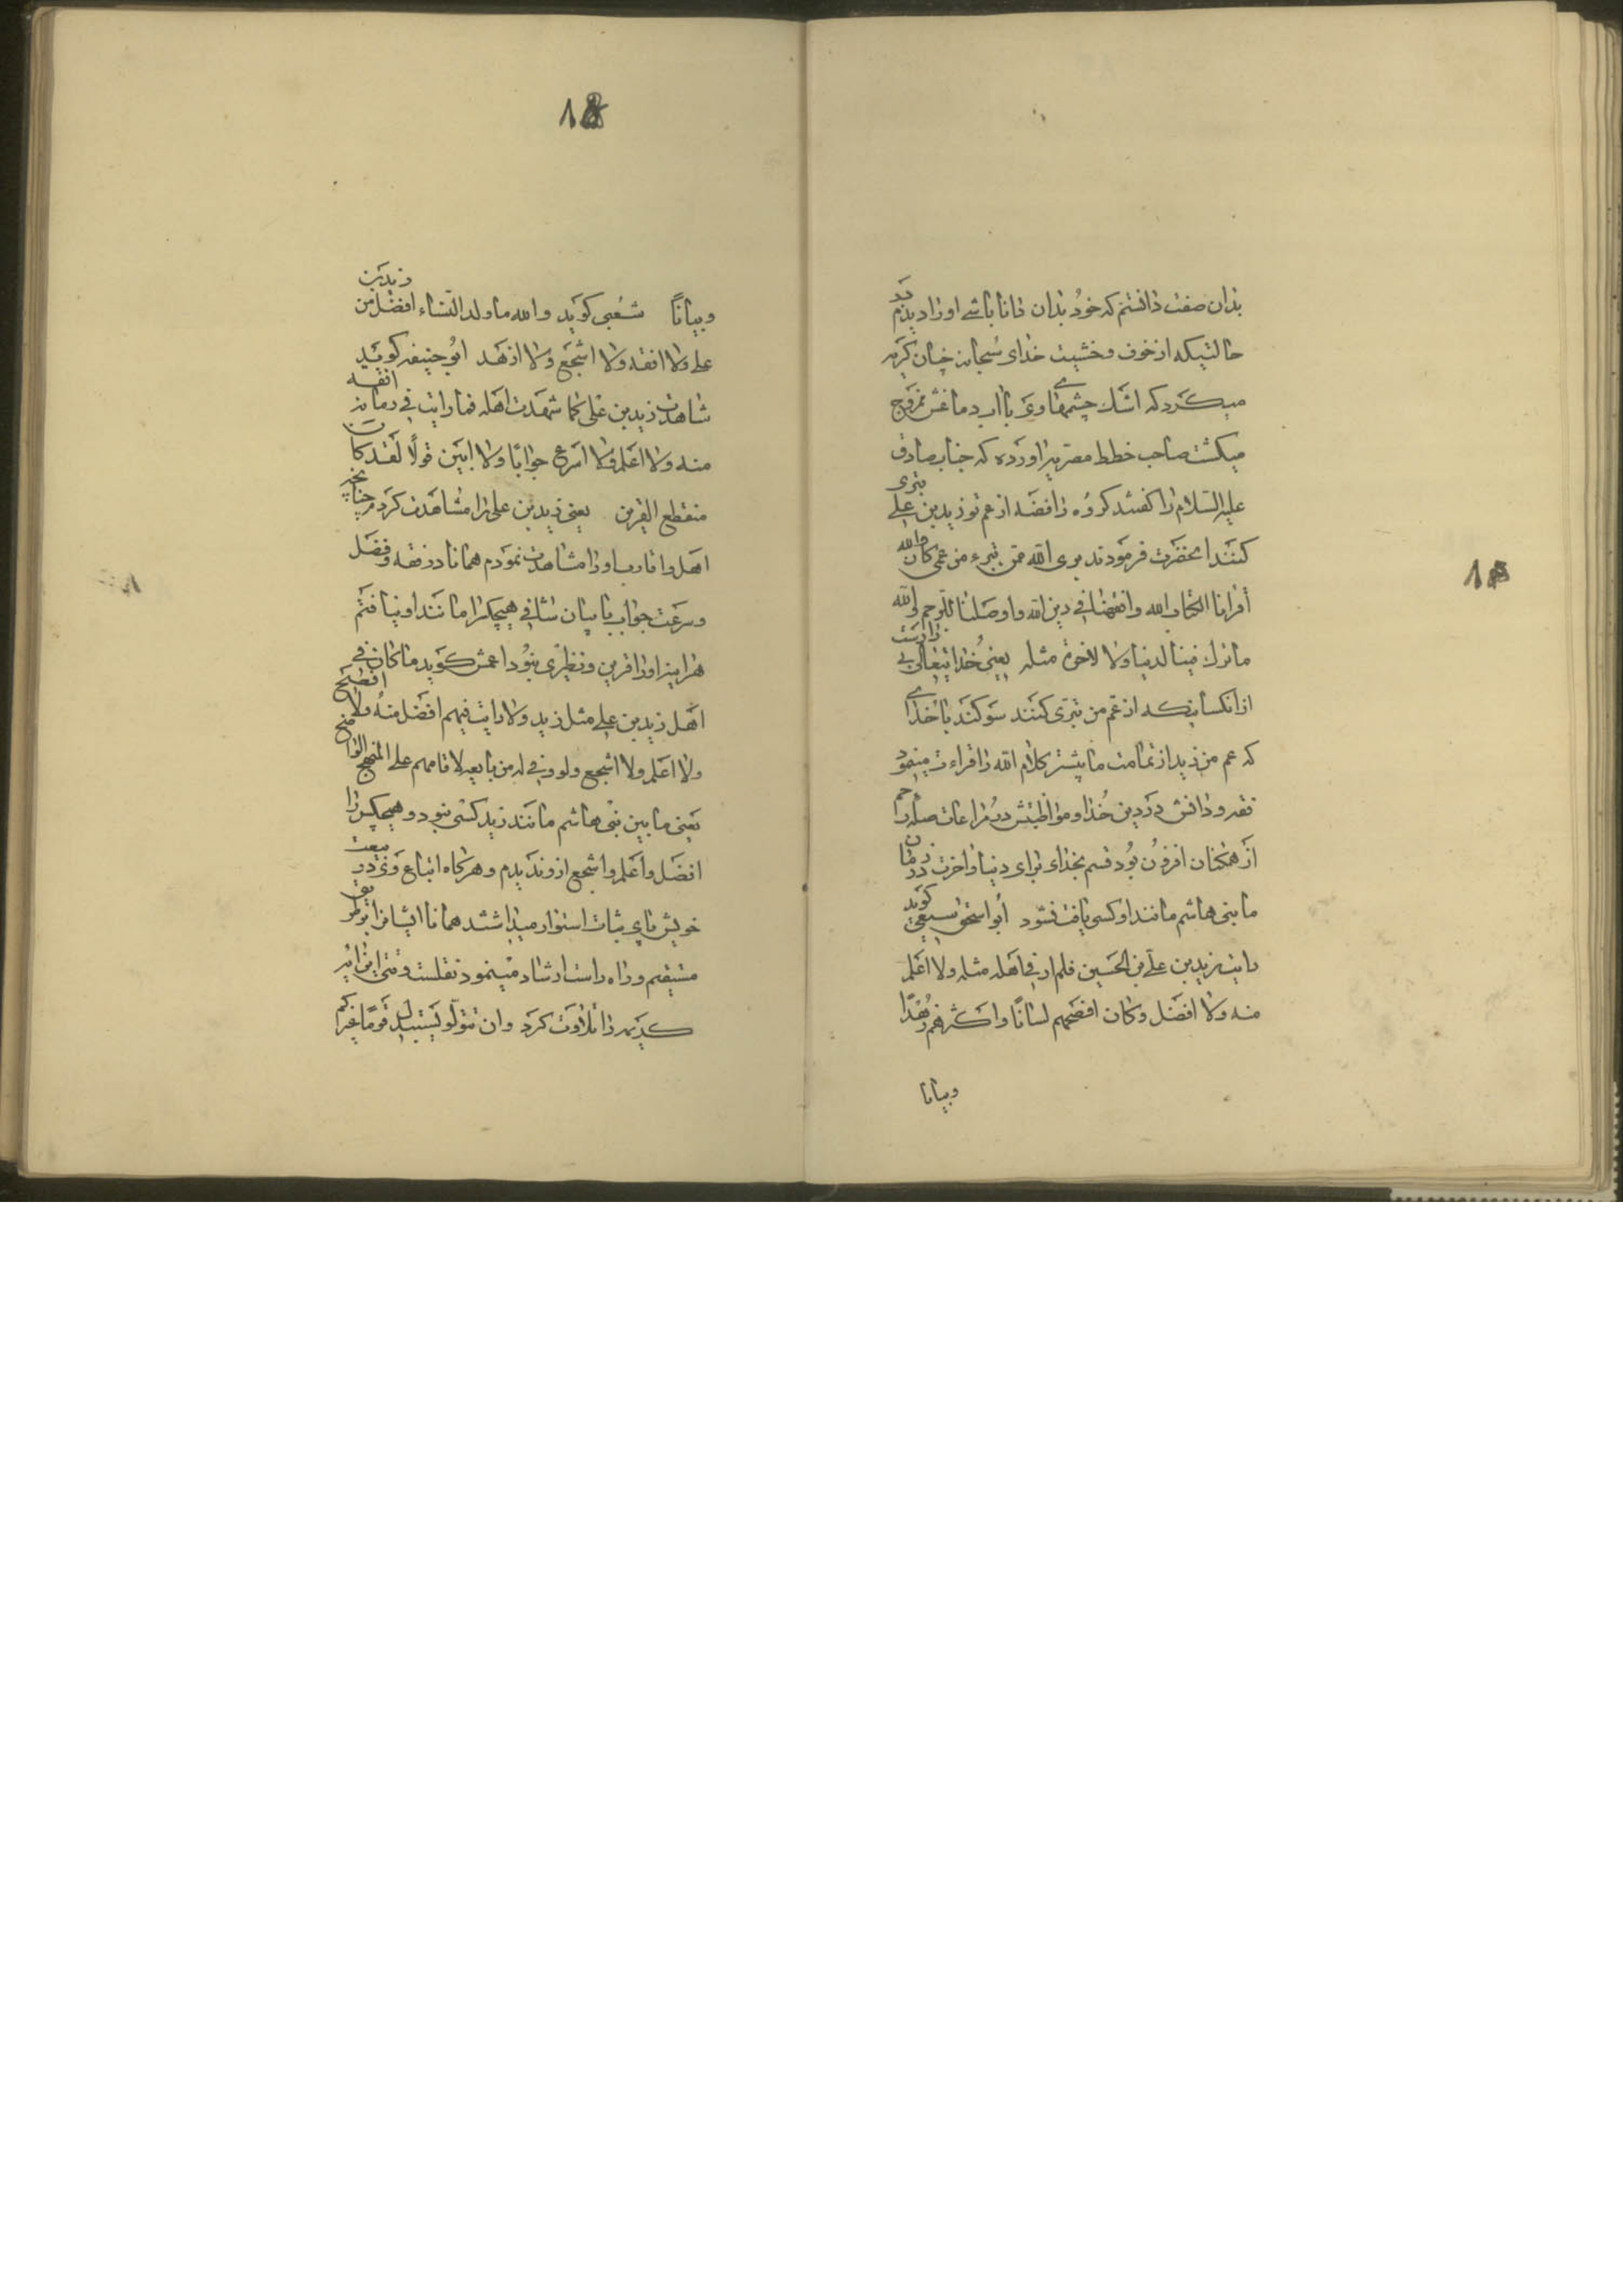 بدان صفت دانستم که خود بدان دانا باشی او را دیدم در
حالتیکه از خوف و خشیت خدای سبحان چنان گریه
میکرد که اشک چشمهای وی با آب دماغش ممزوج
میگشت صاحب خطط مصر نیز اورده که جناب صادق
علیه السلام را گفتند کروه رافضه از عم تو زید بن علی تبری
کنند انحضرت فرمودند بریء الله ممن تبرء من عمی کان والله
أقرانا لکتاب الله وافقهنا فی دین الله واوصلنا للرحم والله
ما ترک فینا لدنیا ولا لاخرة مثله یعنی خدایتعالی بیزارست
از انکسانیکه از عم من تبری کنند سوکند با خدای
که عم من زید از تمامت ما بیشتر کلام الله را قراءت مینمود
فقه و دانش در دین خدا و مواظبتش در مراعات صله رحم را
از همکنان افزون بود قسم بخدای برای دنیا و اخرت در زمان
ما بنی هاشم مانند او کسی یافت نشود أبو اسحق سبیعی کوید
رایت زید بن علی بن الحسین فلم ار فی اهله مثله ولا اعلم
منه ولا افضل وکان افصحهم لسانًا واکثرهم زهدًا
وبیانا
18
وبیانًا شعبی کوید والله ما ولد النساء افضل من زید بن
علی ولا افقه ولا اشجع ولا ازهد ابو حنیفه کوید
شاهدت زید بن علی کما شهدت اهله فما رایت فی زمانه افقه
منه ولا اعلم ولا اسرع جوابًا ولا ابین قولًا لقد کان
منقطع القرین یعنی زید بن علی را مشاهدت کردم چنانچه
اهل و اقارب او را مشاهدت نمودم همانا در فقه و فضل
وسرعت جواب با بیان شافی هیچکس را مانند او نیافتم
هرآینه او را قرین و نظیری نبود اعمش کوید ما کان فی
اهل زید بن علی مثل زید ولا رایت فیهم افضل منه ولا افصح
ولا اعلم ولا اشجع ولو وفی له من بایعه لاقامهم علی المنهج الواضح
یعنی ما بین بنی هاشم مانند زید کسی نبود و هیچکس را
افضل و اعلم و اشجع از وی ندیدم و هرگاه اتباع وی در بیعت
خویش پای ثبات استوار میداشتند همانا ایشان را بر طریق
مستقیم و راه راست ارشاد مینمود نقلست وقتی این ایه
کریمه را تلاوت کرد وان تتولّوا یستبدل قومًا غیرکم